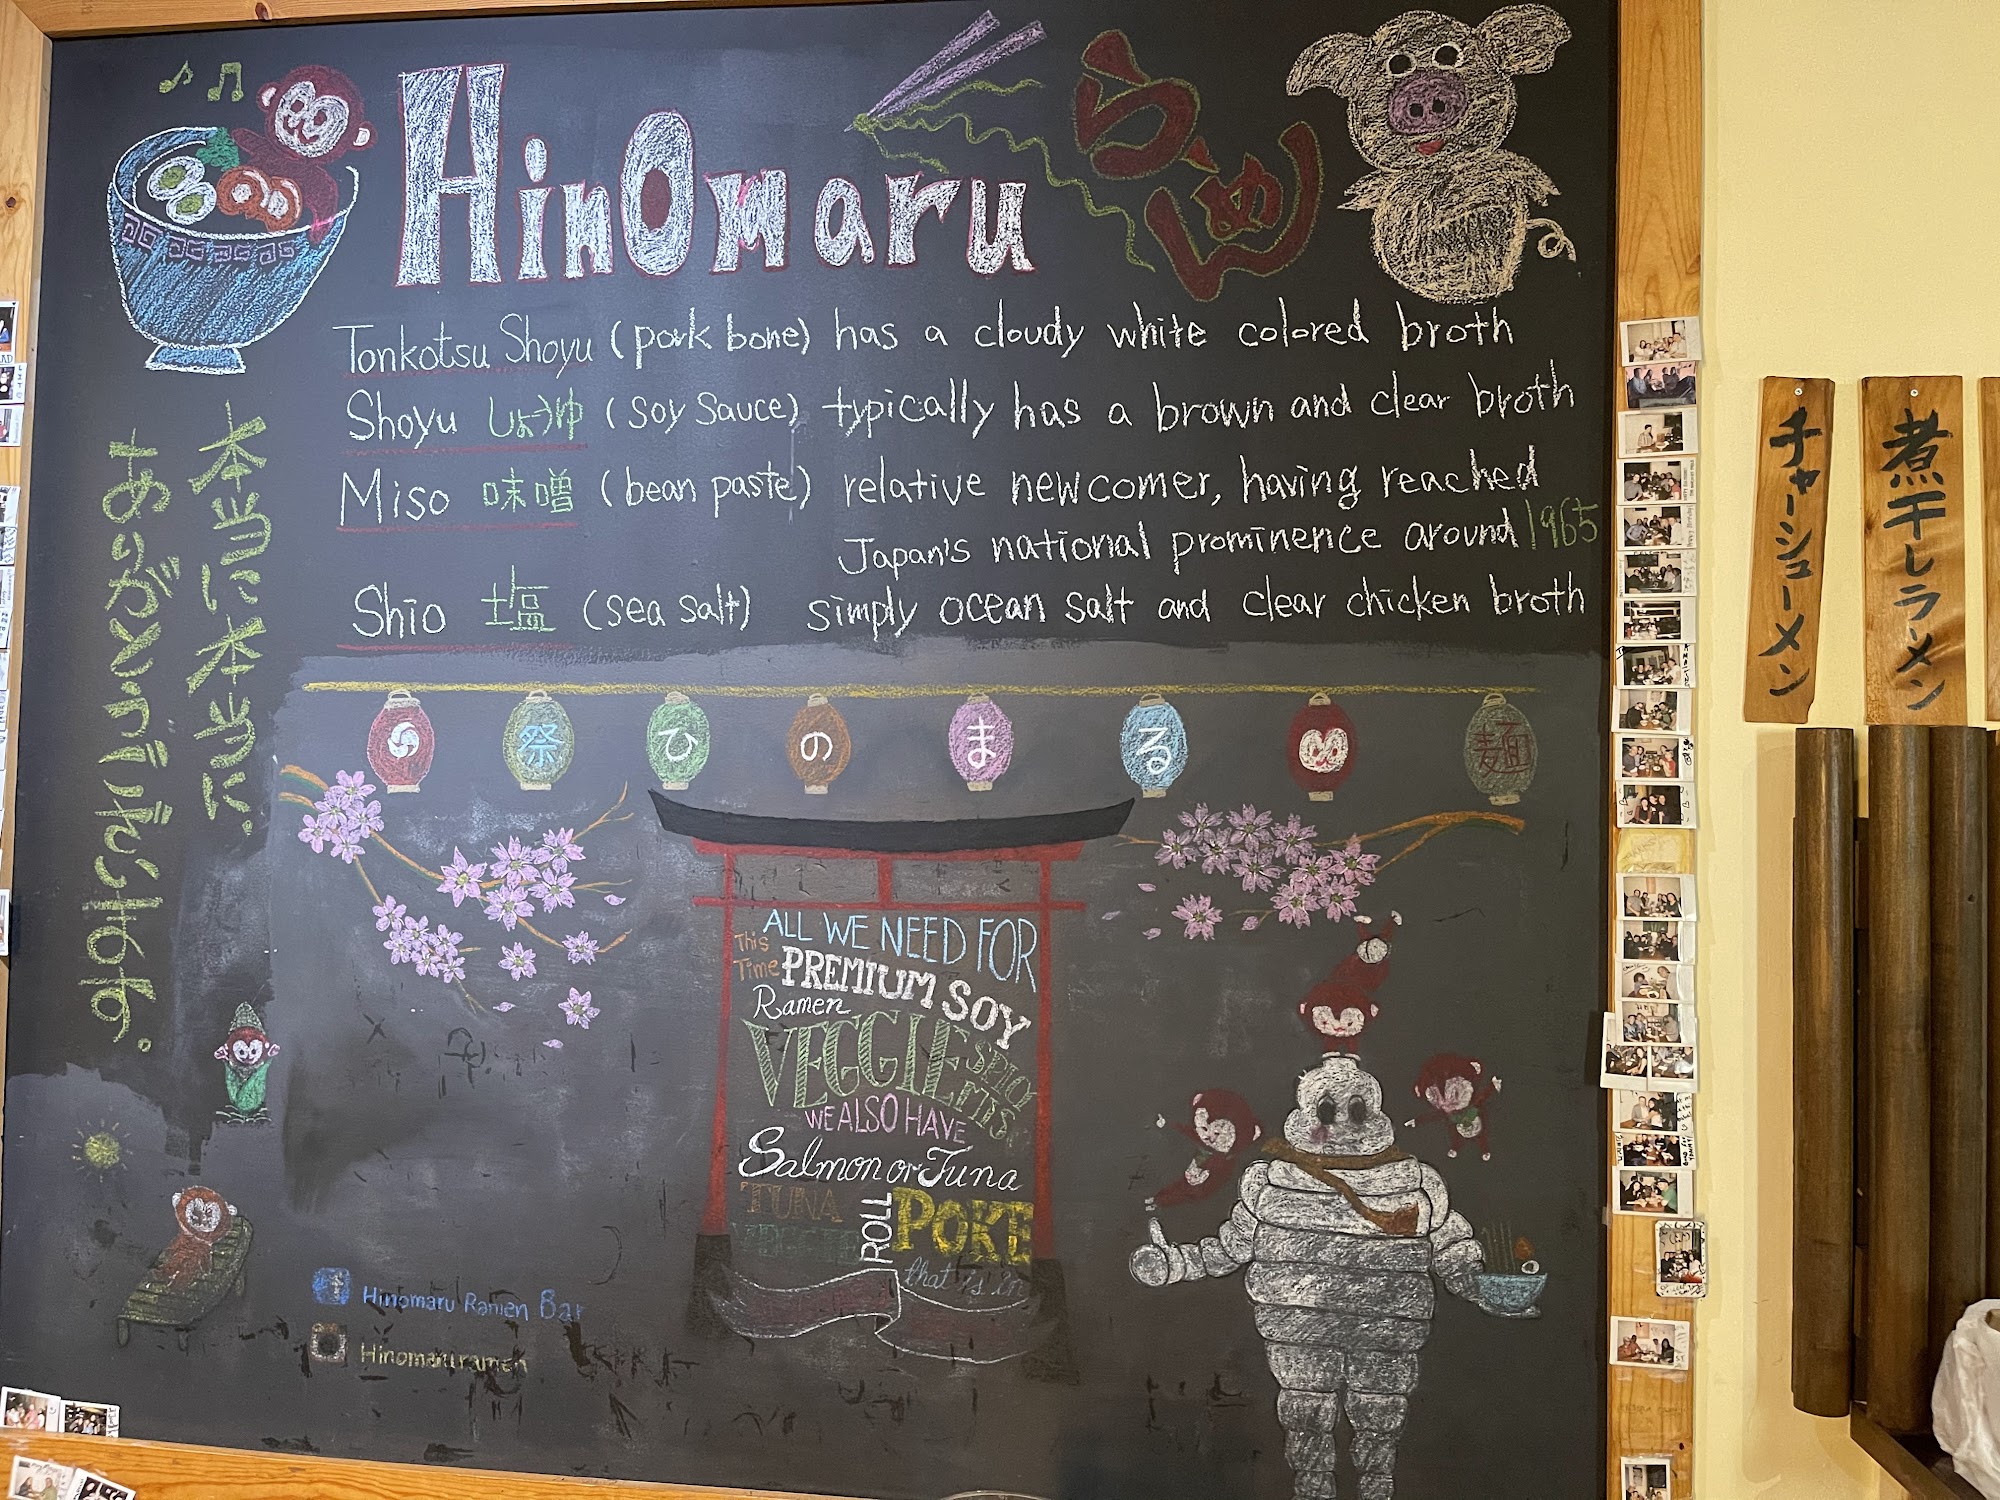 HinOmaru
らーめん
Tonkotsu Shoyu (pork bone) has a cloudy white colored broth
Shoyu しょうゆ (soy sauce) typically has a brown and clear broth
Miso 味噌 (bean paste) relative newcomer, having reached
Japan's national prominence around 1965
Shio 塩 (sea salt) simply ocean salt and clear chicken broth
本当に本当に、
ありがとうございます。
祭 ひ の ま る 麺
ALL WE NEED FOR
This Time PREMIUM SOY
Ramen
VEGGIE
WE ALSO HAVE
Salmon or Tuna
TUNA
VEGGIE
ROLL
POKE
that is in
Hinomaru Ramen Bar
Hinomaruramen
チャーシューメン
煮干しラーメン